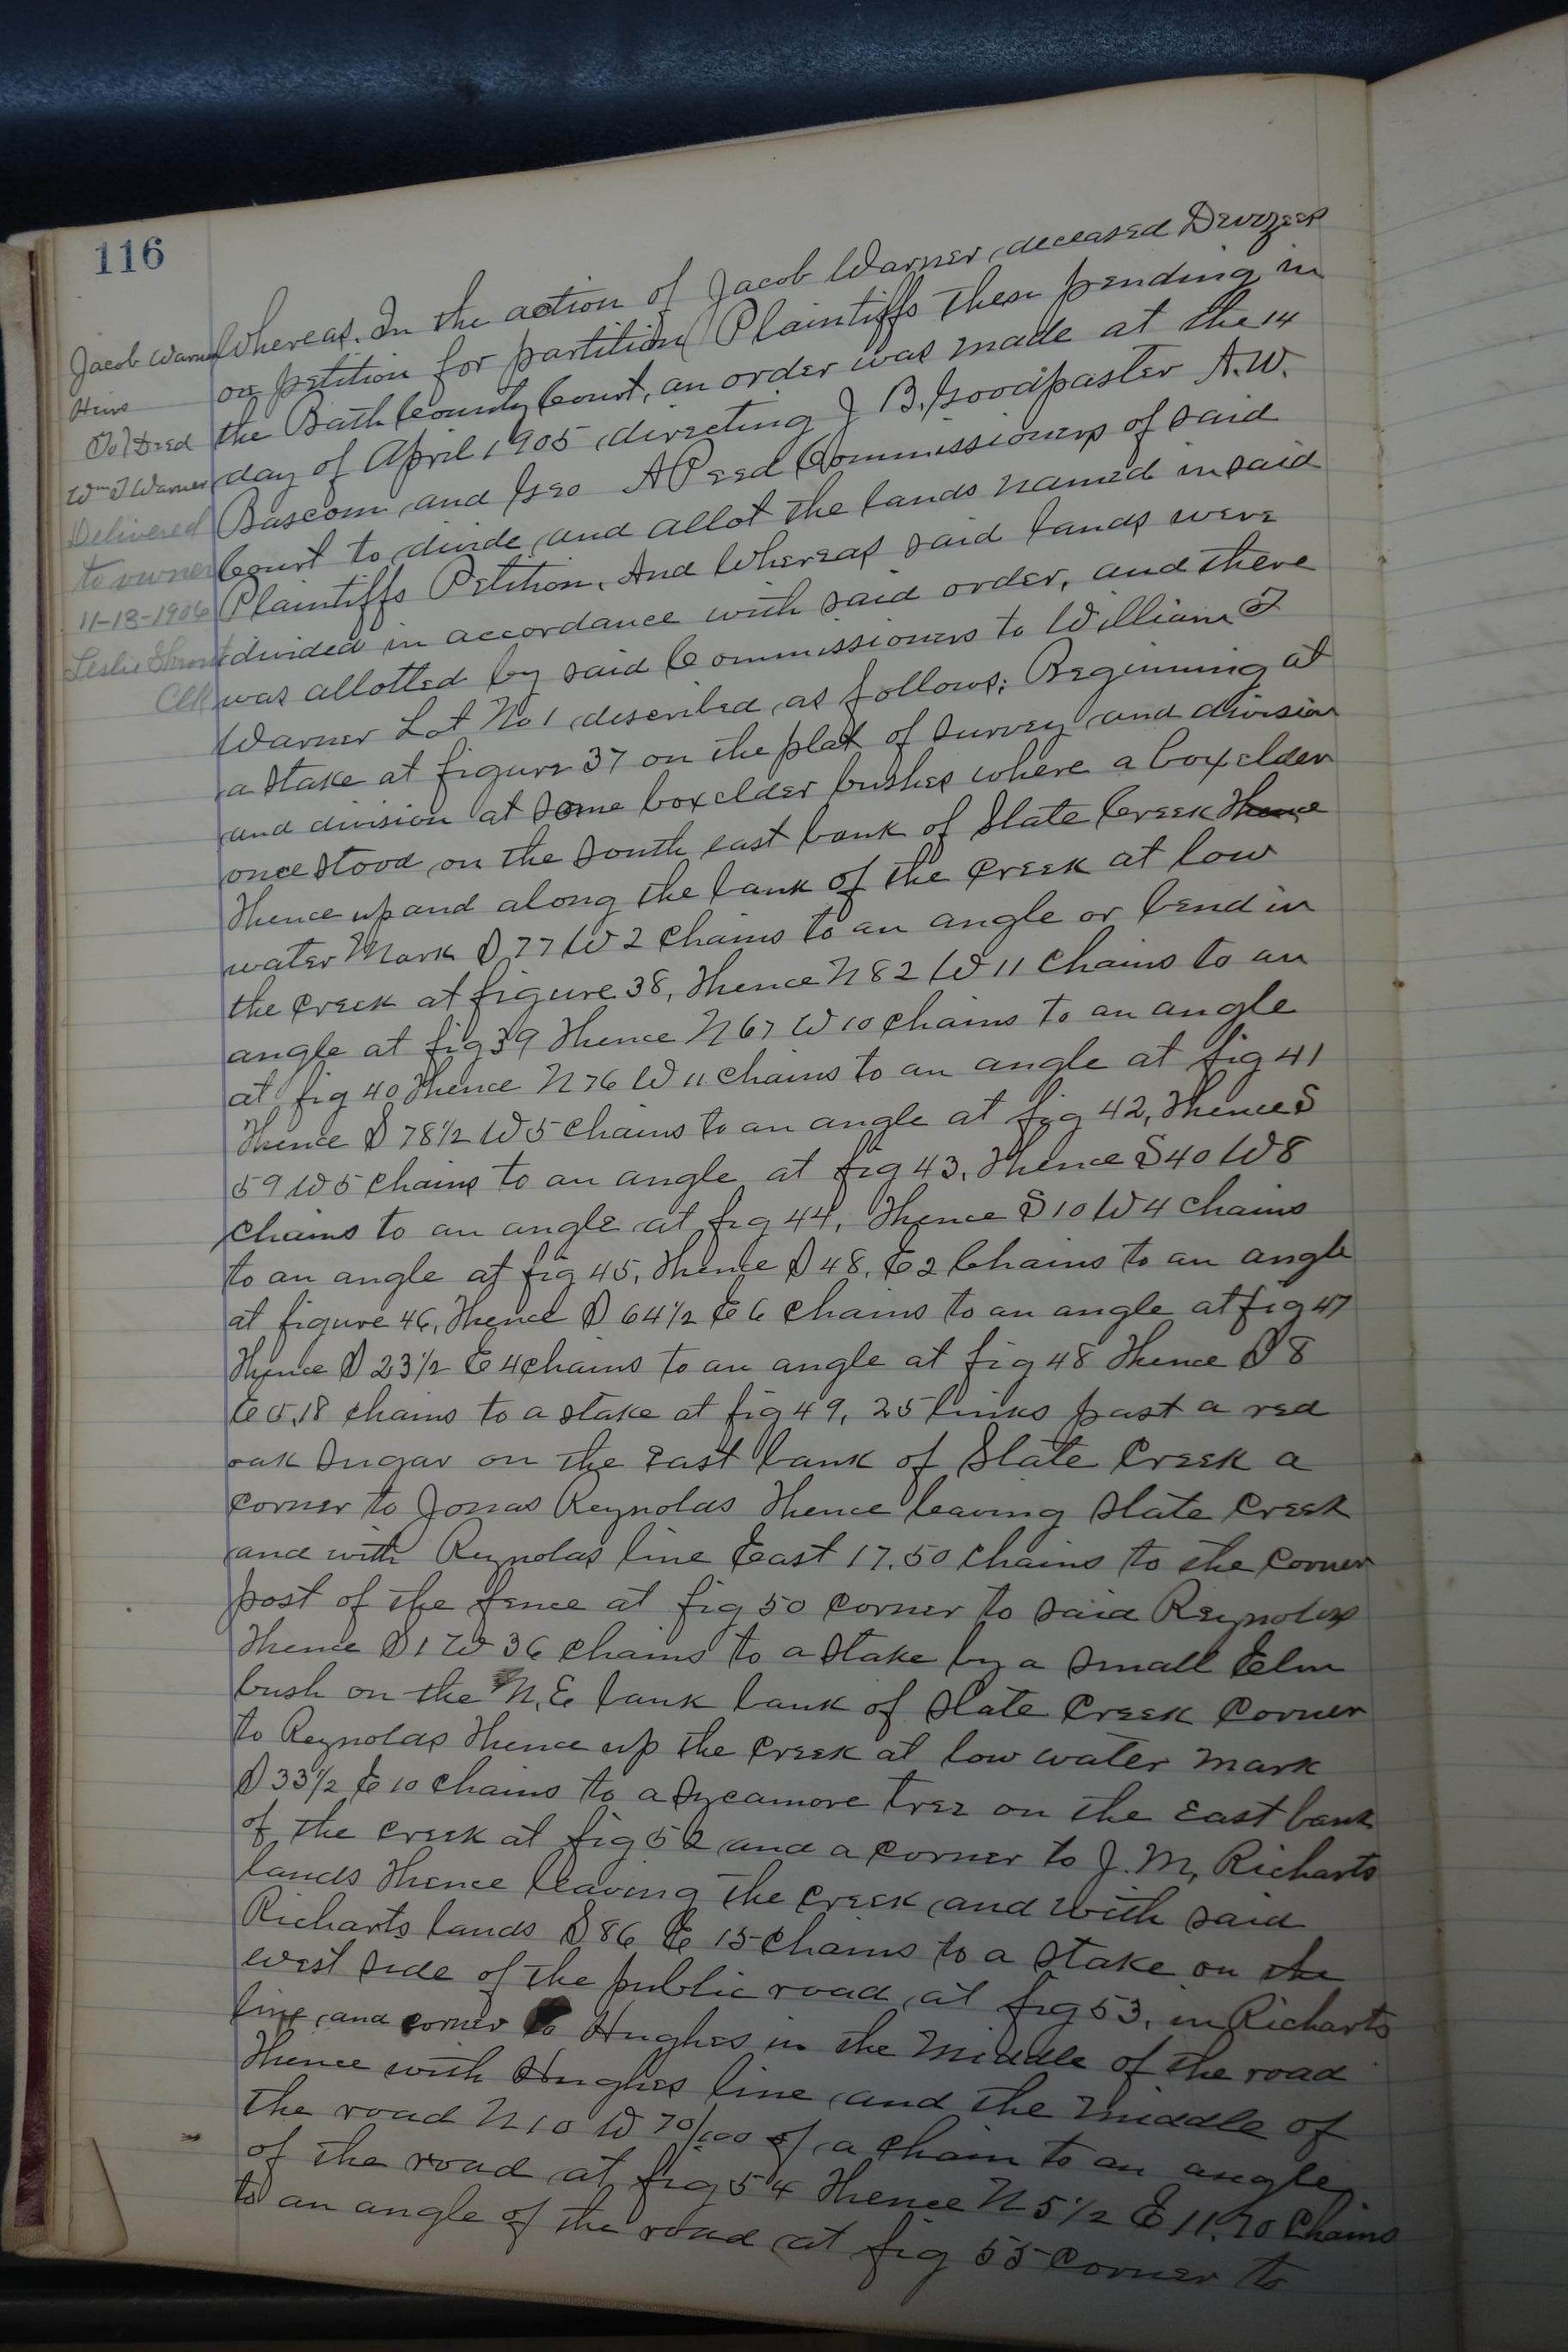 116
Jacob Warner
Heirs
To Deed
Wm T Warner
Delivered
to owner
11-13-1906
Leslie Shrout
Clk
Whereas. In the action of Jacob Warner, deceased Devizees
on petition for partition Plaintiffs then pending in
the Bath County Court, an order was made at the 14
day of April 1905 directing J B. Goodpaster A. W.
Bascom and Geo A Peed Commissioners of said
Court to divide and allot the lands named in said
Plaintiffs Petition. And Whereas said lands were
divided in accordance with said order, and there
was allotted by said Commissioners to William T
Warner Lot No 1 described as follows: Beginning at
a stake at figure 37 on the plat of survey and division
and division at some boxelder bushes where a boxelder
once stood on the south east bank of Slate Creek Thence
Thence up and along the bank of the creek at low
water Mark S 77 W 2 chains to an angle or bend in
the creek at figure 38, Thence N 82 W 11 chains to an
angle at fig 39 Thence N 67 W 10 chains to an angle
at fig 40 Thence N 76 W 11 chains to an angle at fig 41
Thence S 78 1/2 W 5 chains to an angle at fig 42, Thence S
59 W 5 chains to an angle at fig 43, Thence S 40 W 8
chains to an angle at fig 44, Thence S 10 W 4 chains
to an angle at fig 45, Thence S 48, E 2 Chains to an angle
at figure 46, Thence S 64 1/2 E 6 chains to an angle at fig 47
Thence S 23 1/2 E 4 chains to an angle at fig 48 Thence S 8
E 5.18 chains to a stake at fig 49, 25 links past a red
oak sugar on the East bank of Slate Creek a
corner to Jonas Reynolds Thence leaving Slate Creek
and with Reynolds line East 17.50 chains to the corner
post of the fence at fig 50 corner to said Reynolds
Thence S 1 W 36 chains to a stake by a small Elm
bush on the N. E bank bank of Slate Creek Corner
to Reynolds Thence up the creek at low water mark
S 33 1/2 E 10 chains to a sycamore tree on the East bank
of the creek at fig 52 and a corner to J. M, Richarts
lands Thence leaving the creek and with said
Richarts lands S 86 E 15 chains to a stake on the
west side of the public road at fig 53, in Richarts
line and corner to Hughes in the middle of the road
Thence with Hughes line and the middle of
the road N 10 W 70/100 of a chain to an angle
of the road at fig 54 Thence N 5 1/2 E 11.70 Chains
to an angle of the road at fig 55 corner to